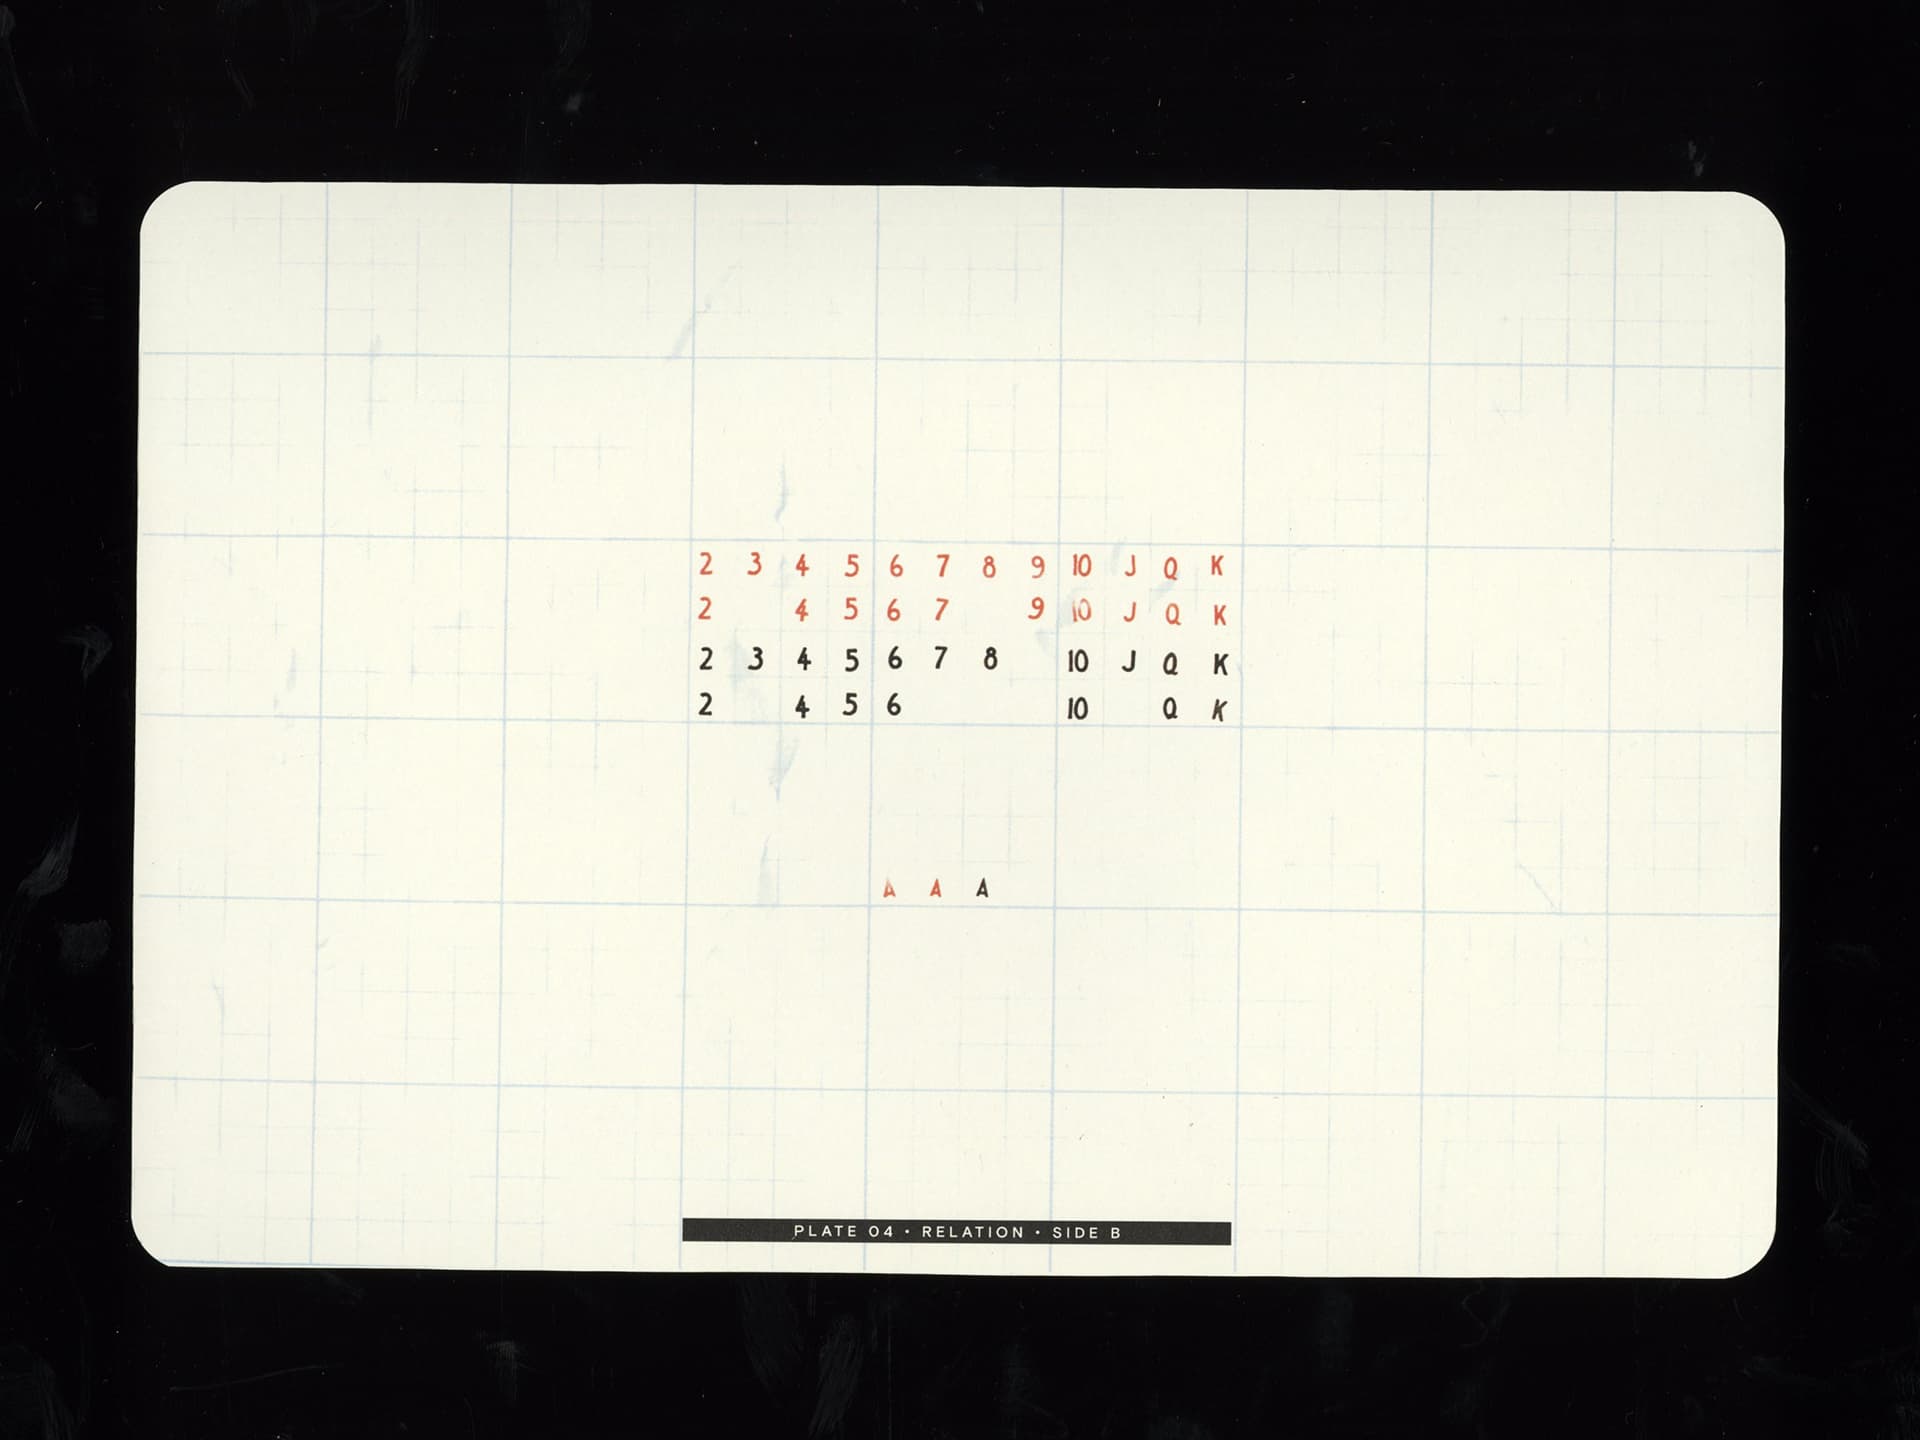 2 3 4 5 6 7 8 9 10 J Q K
2 4 5 6 7 9 10 J Q K
2 3 4 5 6 7 8 10 J Q K
2 4 5 6 10 Q K
A A A
PLATE 04 • RELATION • SIDE B